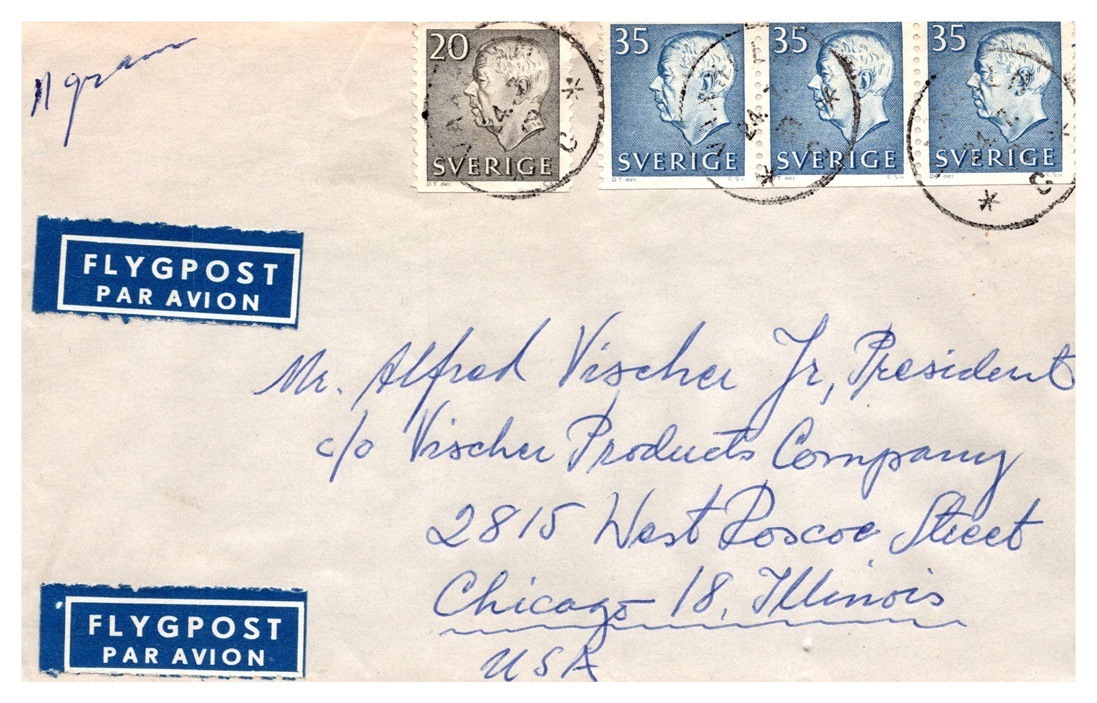 11 gram
20
SVERIGE
DT del
35
SVERIGE
DT del
35
SVERIGE
CSH
35
SVERIGE
FLYGPOST
PAR AVION
Mr. Alfred Vischer Jr, President
c/o Vischer Products Company
2815 West Roscoe Street
Chicago 18, Illinois
USA
FLYGPOST
PAR AVION